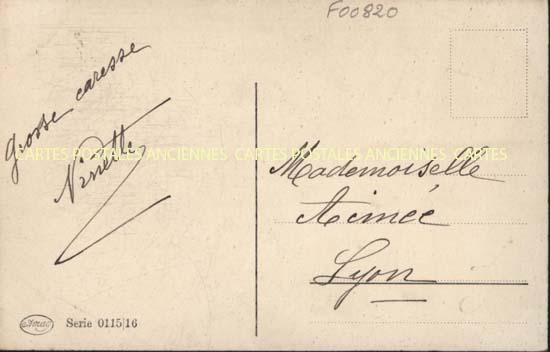 F00820
Grosse caresse
Ninette
CARTES POSTALES ANCIENNES CARTES POSTALES ANCIENNES
Mademoiselle
Aimée
Lyon
Serie 0115/16